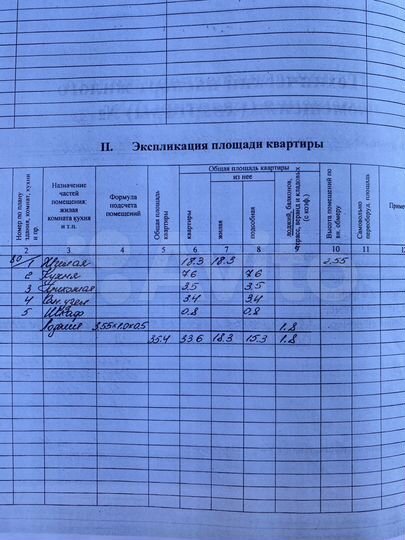 II. Экспликация площади квартиры
Номер по плану здания, комнат, кухни и пр.
Назначение частей помещения: жилая комната кухня и т.п.
Формула подсчета помещений
Общая площадь квартиры
Общая площадь квартиры
из нее
квартиры
жилая
подсобная
лоджий, балконов, террас, веранд и кладовых (с коэф.)
Высота помещений по вн. обмеру
Самовольно переоборуд. площадь
Приме
2 3 4 5 6 7 8 9 10 11 12
80/1 Жилая 18.3 18.3 2,55
2 Кухня 7.6 7.6
3 Прихожая 3.5 3.5
4 Сан. узел 3.4 3.4
5 Шкаф 0.8 0.8
Лоджия 3.55×1.0×0.5 1.8
35.4 33.6 18.3 15.3 1.8